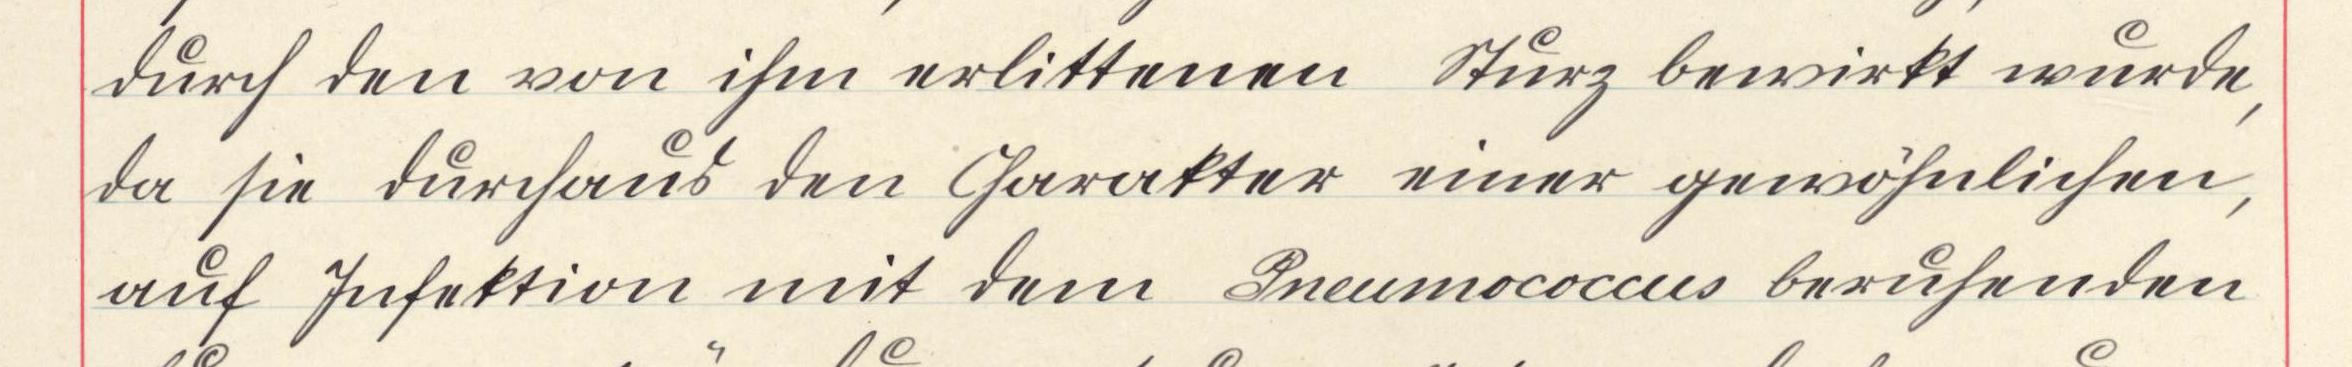 durch den von ihm erlittenen Sturz bewirkt wurde,
da sie durchaus den Charakter einer gewöhnlichen,
auf Infektion mit dem Pneumococcus beruhenden